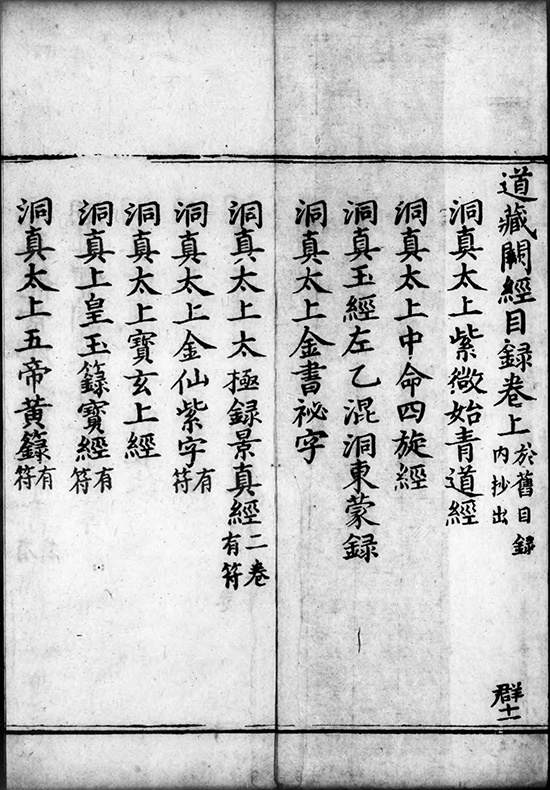 道藏闕經目録卷上 於舊目録内抄出
群十一
洞真太上紫微始青道經
洞真太上中命四旋經
洞真玉經左乙混洞東蒙録
洞真太上金書祕字
洞真太上太極録景真經二卷有符
洞真太上金仙紫字有符
洞真太上寶玄上經
洞真上皇玉籙寶經有符
洞真太上五帝黃籙有符